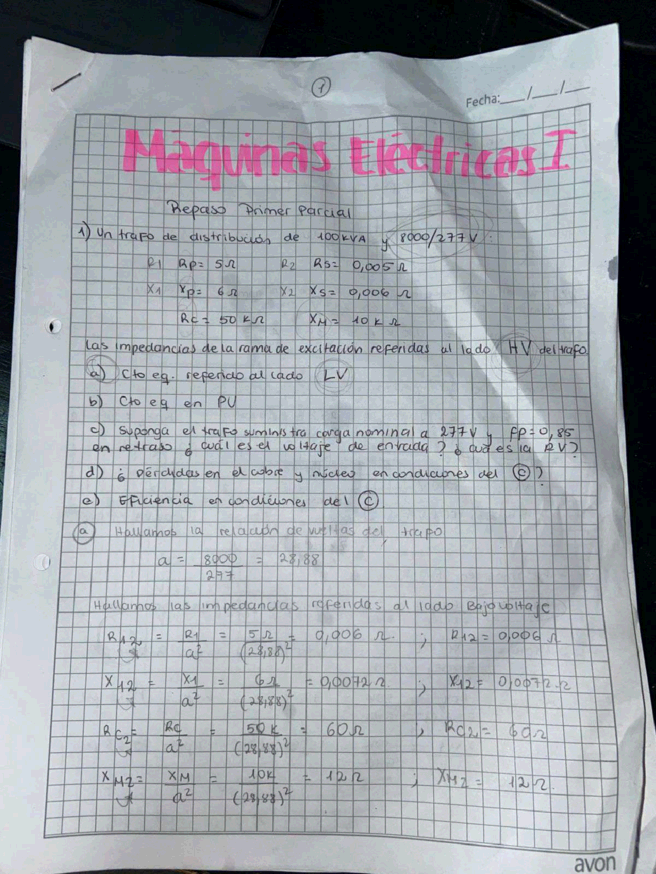 1
Fecha:__/__/__
Máquinas Eléctricas I
Repaso Primer Parcial
1) Un trafo de distribución de 100KVA y 8000/277V
R1 Rp= 5Ω R2 Rs= 0,005Ω
X1 Xp= 6Ω X2 Xs= 0,006 Ω
Rc= 50 kΩ XM= 10 k Ω
Las impedancias de la rama de excitación referidas al lado HV del trafo
a) Cto eq. referido al lado LV
b) Cto eq en PU
c) Suponga el trafo suministra carga nominal a 277V y FP=0,85
en retraso ¿ cuál es el voltaje de entrada? ¿ cuál es la RV?
d) ¿ Pérdidas en el cobre y núcleo en condiciones del C?
e) Eficiencia en condiciones del C
a Hallamos la relación de vueltas del trafo
a = 8000/277 = 28,88
Hallamos las impedancias referidas al lado Bajo voltaje
R12 = R1/a² = 5Ω/(28,88)² = 0,006 Ω. ; R12 = 0,006 Ω
X12 = X1/a² = 6Ω/(28,88)² = 0,0072Ω ; X12 = 0,0072Ω
RC2 = RC/a² = 50K/(28,88)² = 60Ω ; RC2 = 60Ω
XM2 = XM/a² = 10K/(28,88)² = 12Ω ; XM2 = 12Ω.
avon